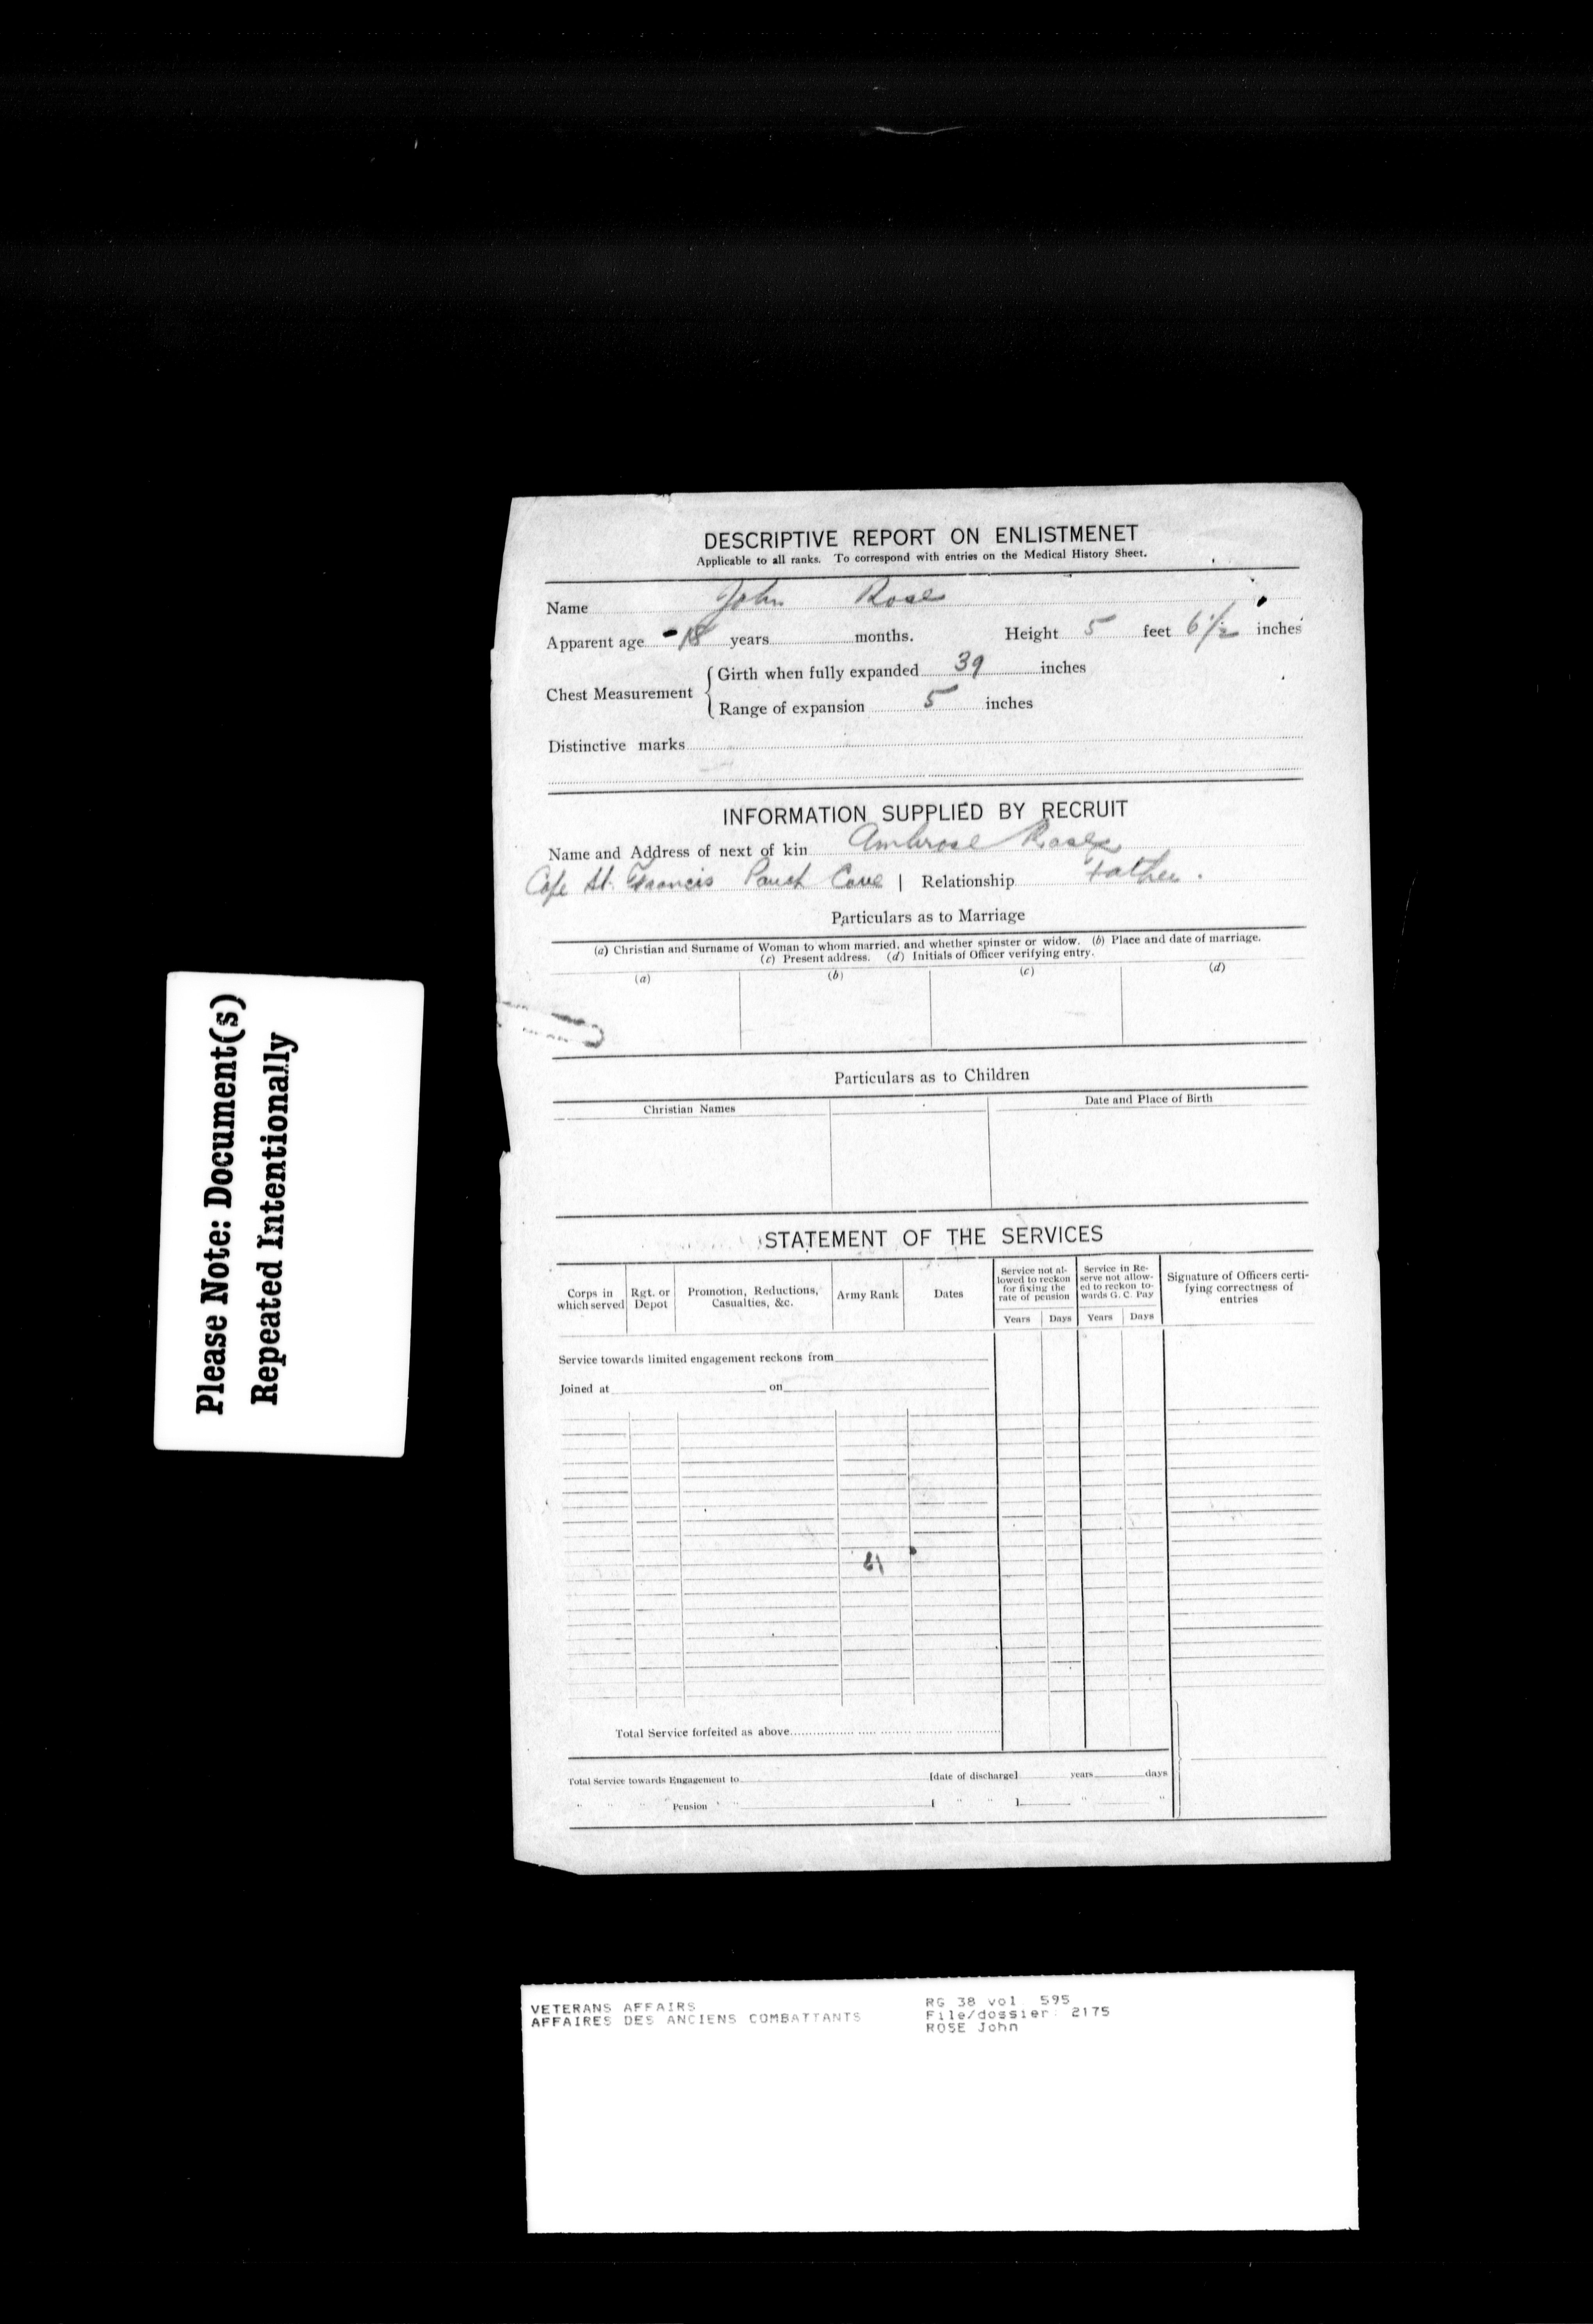 DESCRIPTIVE REPORT ON ENLISTMENET
Applicable to all ranks. To correspond with entries on the Medical History Sheet.
Name John Rose
Apparent age 18 years months. Height 5 feet 6 1/2 inches
Chest Measurement { Girth when fully expanded 39 inches
Range of expansion 5 inches
Distinctive marks
INFORMATION SUPPLIED BY RECRUIT
Name and Address of next of kin Ambrose Rose
Cape St. Francis Cove | Relationship Father.
Particulars as to Marriage
(a) Christian and Surname of Woman to whom married, and whether spinster or widow. (b) Place and date of marriage.
(c) Present address. (d) Initials of Officer verifying entry.
(a) (b) (c) (d)
Particulars as to Children
Christian Names Date and Place of Birth
STATEMENT OF THE SERVICES
Corps in which served
Rgt. or Depot
Promotion, Reductions, Casualties, &c.
Army Rank
Dates
Service not allowed to reckon for fixing the rate of pension
Service in Reserve not allowed to reckon towards G. C. Pay
Signature of Officers certifying correctness of entries
Years Days Years Days
Service towards limited engagement reckons from
Joined at on
Total Service forfeited as above
Total Service towards Engagement to [date of discharge] years days
" " " Pension " " [ " " ] " "
Please Note: Document(s)
Repeated Intentionally
VETERANS AFFAIRS
AFFAIRES DES ANCIENS COMBATTANTS
RG 38 vol. 595
File/dossier: 2175
ROSE John